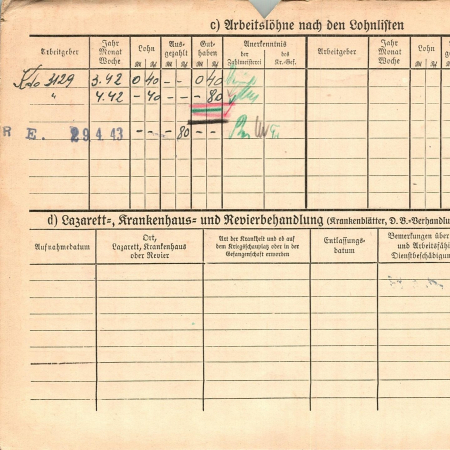 c) Arbeitslöhne nach den Lohnlisten
Arbeitgeber Jahr Monat Woche Lohn Aus- gezahlt Gut- haben Anerkenntnis der Zahlmeisterei des Kr.-Gef. Arbeitgeber Jahr Monat Woche Lohn
Kdo 3129 3.42 0 40 - - 0 40
" 4.42 - 40 - - - 80
R E. 29.4.43 - - - 80 - -
d) Lazarett-, Krankenhaus- und Revierbehandlung (Krankenblätter, D. B.-Verhandlu
Aufnahmedatum Ort, Lazarett, Krankenhaus oder Revier Art der Krankheit und ob auf dem Kriegsschauplatz oder in der Gefangenschaft erworben Entlassungs- datum Bemerkungen über und Arbeitsfäh Dienstbeschädigun